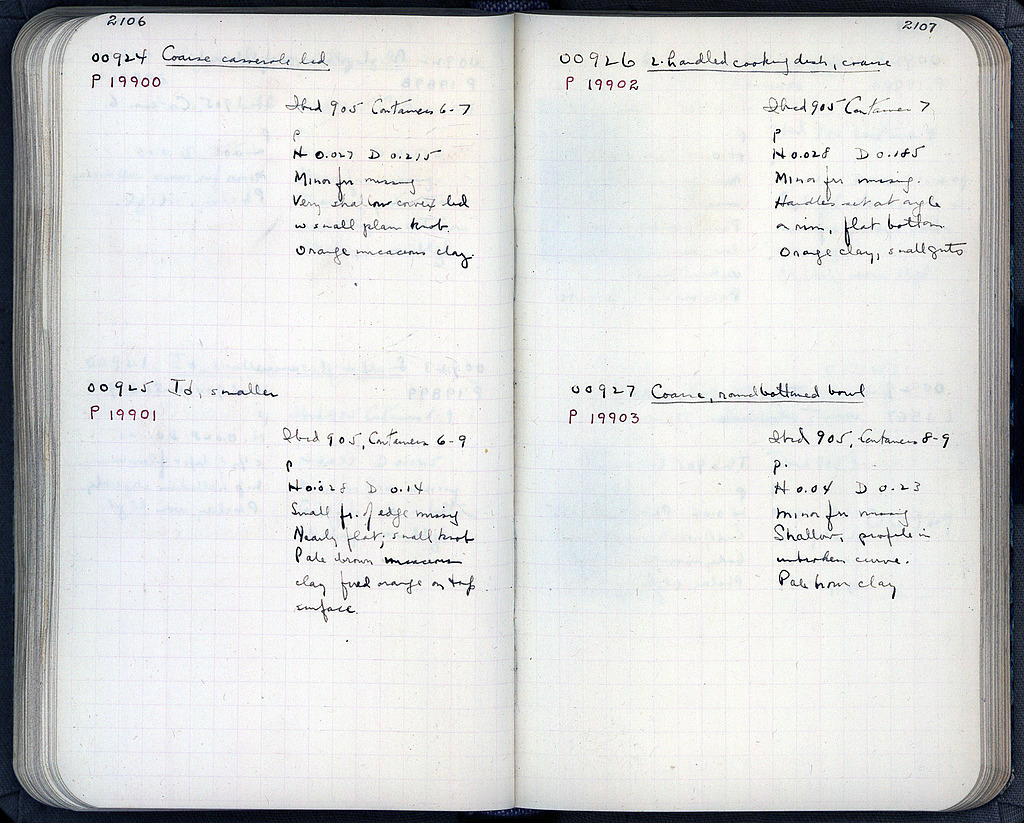 2106
OO924 Coarse casserole lid
P 19900
Ibid 905 Containers 6-7
P
H 0.027 D 0.215
Minor frr missing.
Very shallow convex lid
w small plain knob.
Orange micaceous clay.
OO925 Id, smaller
P 19901
Ibid 905, Containers 6-9
P
H 0.028 D 0.14
Small fr. of edge missing
Nearly flat; small knob
Pale brown micaceous
clay fired orange on top
surface.
2107
OO926 2-handled cooking dish, coarse
P 19902
Ibid 905 Container 7
P
H 0.028 D 0.185
Minor frr missing.
Handles set at angle
on rim, flat bottom.
Orange clay, small grits
OO927 Coarse, round bottomed bowl
P 19903
Ibid 905, Containers 8-9
P.
H 0.04 D 0.23
Minor frr missing
Shallow, profile in
unbroken curve.
Pale brown clay